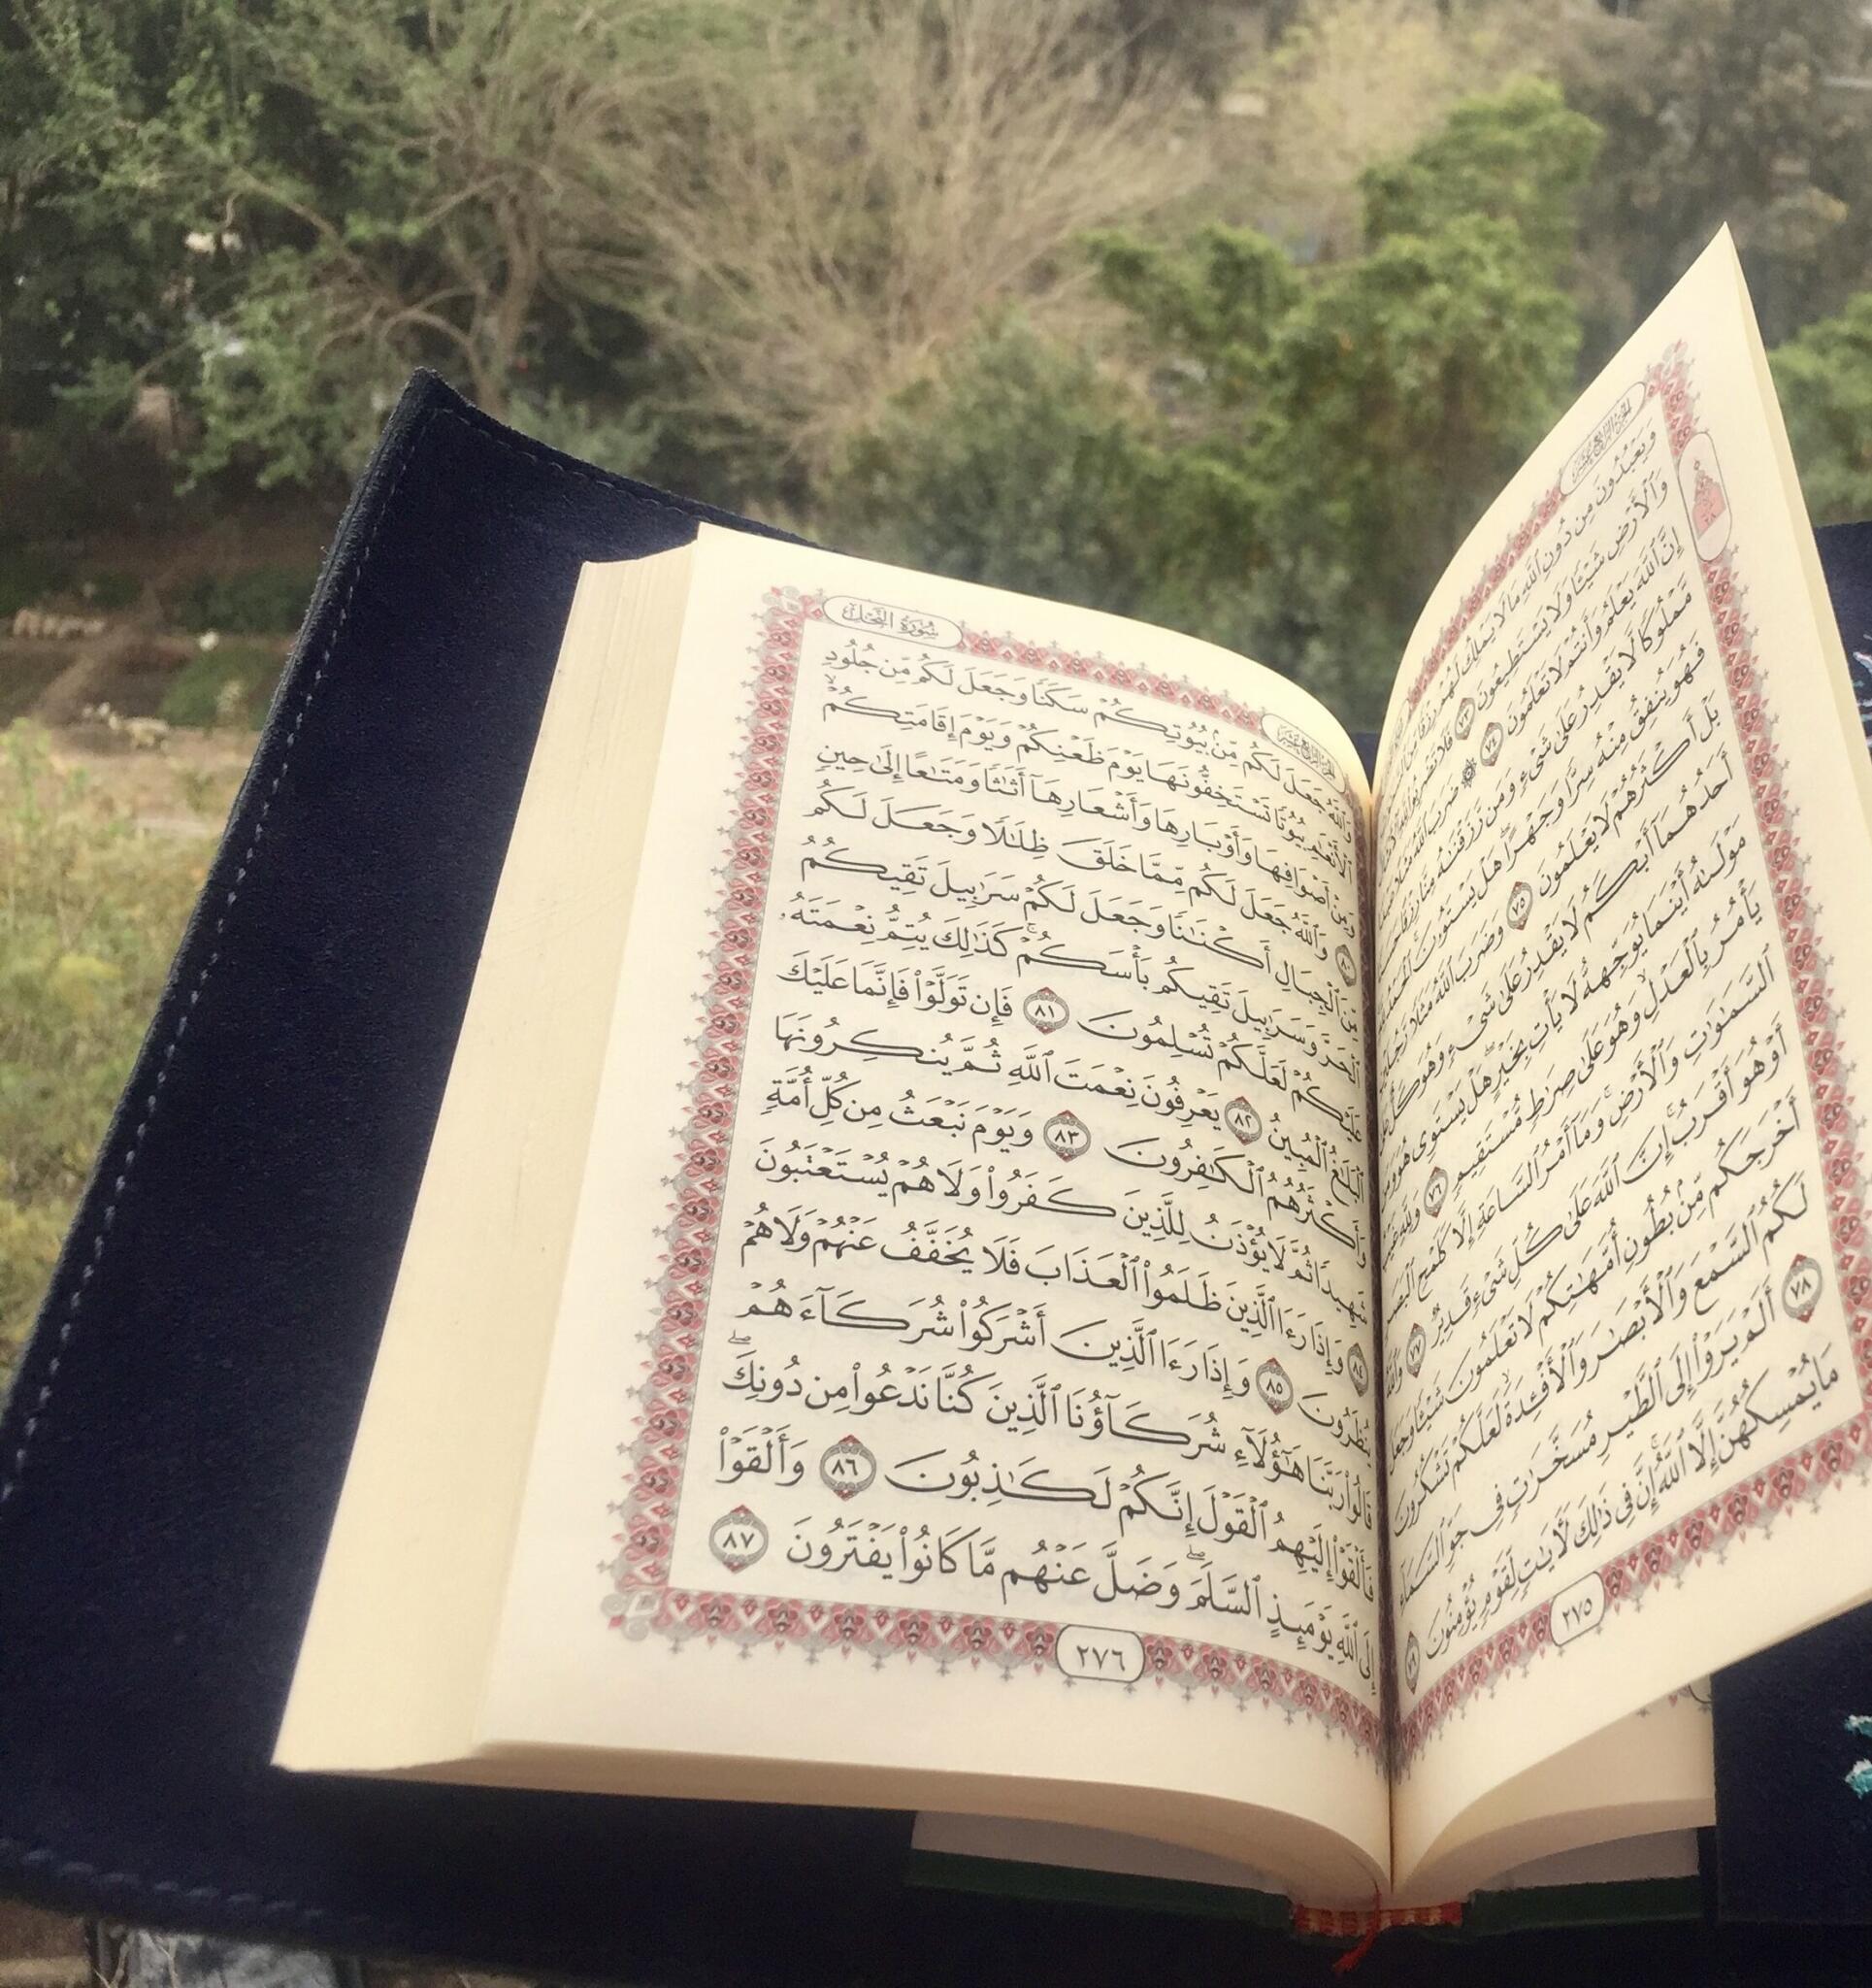 الجزء الرابع عشر
وَيَعْبُدُونَ مِن دُونِ ٱللَّهِ مَا لَا يَمْلِكُ لَهُمْ رِزْقًا مِّنَ
وَٱلْأَرْضِ شَيْـًٔا وَلَا يَسْتَطِيعُونَ ٧٣ فَلَا تَضْرِبُوا۟ لِلَّهِ
إِنَّ ٱللَّهَ يَعْلَمُ وَأَنتُمْ لَا تَعْلَمُونَ ٧٤ ۞ ضَرَبَ ٱللَّهُ مَثَلًا
مَّمْلُوكًا لَّا يَقْدِرُ عَلَىٰ شَىْءٍ وَمَن رَّزَقْنَـٰهُ مِنَّا رِزْقًا حَسَنًا
فَهُوَ يُنفِقُ مِنْهُ سِرًّا وَجَهْرًا ۖ هَلْ يَسْتَوُۥنَ ۚ ٱلْحَمْدُ لِلَّهِ
بَلْ أَكْثَرُهُمْ لَا يَعْلَمُونَ ٧٥ وَضَرَبَ ٱللَّهُ مَثَلًا رَّجُلَيْنِ
أَحَدُهُمَآ أَبْكَمُ لَا يَقْدِرُ عَلَىٰ شَىْءٍ وَهُوَ كَلٌّ عَلَىٰ
مَوْلَىٰهُ أَيْنَمَا يُوَجِّههُّ لَا يَأْتِ بِخَيْرٍ ۖ هَلْ يَسْتَوِى هُوَ وَمَن
يَأْمُرُ بِٱلْعَدْلِ ۙ وَهُوَ عَلَىٰ صِرَٰطٍ مُّسْتَقِيمٍ ٧٦ وَلِلَّهِ غَيْبُ
ٱلسَّمَـٰوَٰتِ وَٱلْأَرْضِ ۚ وَمَآ أَمْرُ ٱلسَّاعَةِ إِلَّا كَلَمْحِ ٱلْبَصَرِ
أَوْ هُوَ أَقْرَبُ ۚ إِنَّ ٱللَّهَ عَلَىٰ كُلِّ شَىْءٍ قَدِيرٌ ٧٧ وَٱللَّهُ
أَخْرَجَكُم مِّنۢ بُطُونِ أُمَّهَـٰتِكُمْ لَا تَعْلَمُونَ شَيْـًٔا وَجَعَلَ
لَكُمُ ٱلسَّمْعَ وَٱلْأَبْصَـٰرَ وَٱلْأَفْـِٔدَةَ ۙ لَعَلَّكُمْ تَشْكُرُونَ
٧٨ أَلَمْ يَرَوْا۟ إِلَى ٱلطَّيْرِ مُسَخَّرَٰتٍ فِى جَوِّ ٱلسَّمَآءِ
مَا يُمْسِكُهُنَّ إِلَّا ٱللَّهُ ۗ إِنَّ فِى ذَٰلِكَ لَـَٔايَـٰتٍ لِّقَوْمٍ يُؤْمِنُونَ
٢٧٥
الجزء الرابع عشر سُورَةُ النَّحْلِ
وَٱللَّهُ جَعَلَ لَكُم مِّنۢ بُيُوتِكُمْ سَكَنًا وَجَعَلَ لَكُم مِّن جُلُودِ
ٱلْأَنْعَـٰمِ بُيُوتًا تَسْتَخِفُّونَهَا يَوْمَ ظَعْنِكُمْ وَيَوْمَ إِقَامَتِكُمْ ۙ
وَمِنْ أَصْوَافِهَا وَأَوْبَارِهَا وَأَشْعَارِهَآ أَثَـٰثًا وَمَتَـٰعًا إِلَىٰ حِينٍ
٨٠ وَٱللَّهُ جَعَلَ لَكُم مِّمَّا خَلَقَ ظِلَـٰلًا وَجَعَلَ لَكُم
مِّنَ ٱلْجِبَالِ أَكْنَـٰنًا وَجَعَلَ لَكُمْ سَرَٰبِيلَ تَقِيكُمُ
ٱلْحَرَّ وَسَرَٰبِيلَ تَقِيكُم بَأْسَكُمْ ۚ كَذَٰلِكَ يُتِمُّ نِعْمَتَهُۥ
عَلَيْكُمْ لَعَلَّكُمْ تُسْلِمُونَ ٨١ فَإِن تَوَلَّوْا۟ فَإِنَّمَا عَلَيْكَ
ٱلْبَلَـٰغُ ٱلْمُبِينُ ٨٢ يَعْرِفُونَ نِعْمَتَ ٱللَّهِ ثُمَّ يُنكِرُونَهَا
وَأَكْثَرُهُمُ ٱلْكَـٰفِرُونَ ٨٣ وَيَوْمَ نَبْعَثُ مِن كُلِّ أُمَّةٍ
شَهِيدًا ثُمَّ لَا يُؤْذَنُ لِلَّذِينَ كَفَرُوا۟ وَلَا هُمْ يُسْتَعْتَبُونَ
٨٤ وَإِذَا رَءَا ٱلَّذِينَ ظَلَمُوا۟ ٱلْعَذَابَ فَلَا يُخَفَّفُ عَنْهُمْ وَلَا هُمْ
يُنظَرُونَ ٨٥ وَإِذَا رَءَا ٱلَّذِينَ أَشْرَكُوا۟ شُرَكَآءَهُمْ
قَالُوا۟ رَبَّنَا هَـٰٓؤُلَآءِ شُرَكَآؤُنَا ٱلَّذِينَ كُنَّا نَدْعُوا۟ مِن دُونِكَ ۖ
فَأَلْقَوْا۟ إِلَيْهِمُ ٱلْقَوْلَ إِنَّكُمْ لَكَـٰذِبُونَ ٨٦ وَأَلْقَوْا۟
إِلَى ٱللَّهِ يَوْمَئِذٍ ٱلسَّلَمَ ۖ وَضَلَّ عَنْهُم مَّا كَانُوا۟ يَفْتَرُونَ ٨٧
٢٧٦